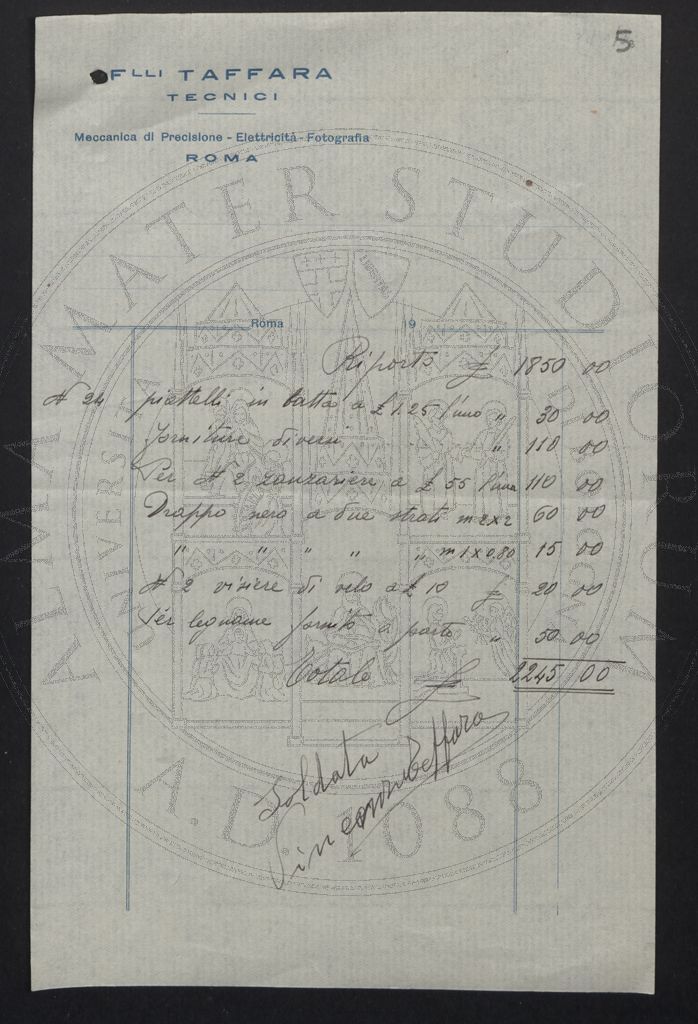 5
Flli TAFFARA
TECNICI
Meccanica di Precisione - Elettricità - Fotografia
ROMA
Roma 19
Riporto £ 1850 00
N 24 piattelli in latta a £ 1.25 l'uno " 30 00
forniture diversi " 110 00
Per N 2 zanzariere a £ 55 l'una 110 00
Drappo nero a due strati m 2x2 60 00
" " " " " m 1x0,80 15 00
N 2 visiere di velo a £ 10 £ 20 00
Per legname fornito a parte " 50 00
Totale £ 2245 00
Soldata
Taffara
ALMA MATER STUDIORUM
A.D. 1088